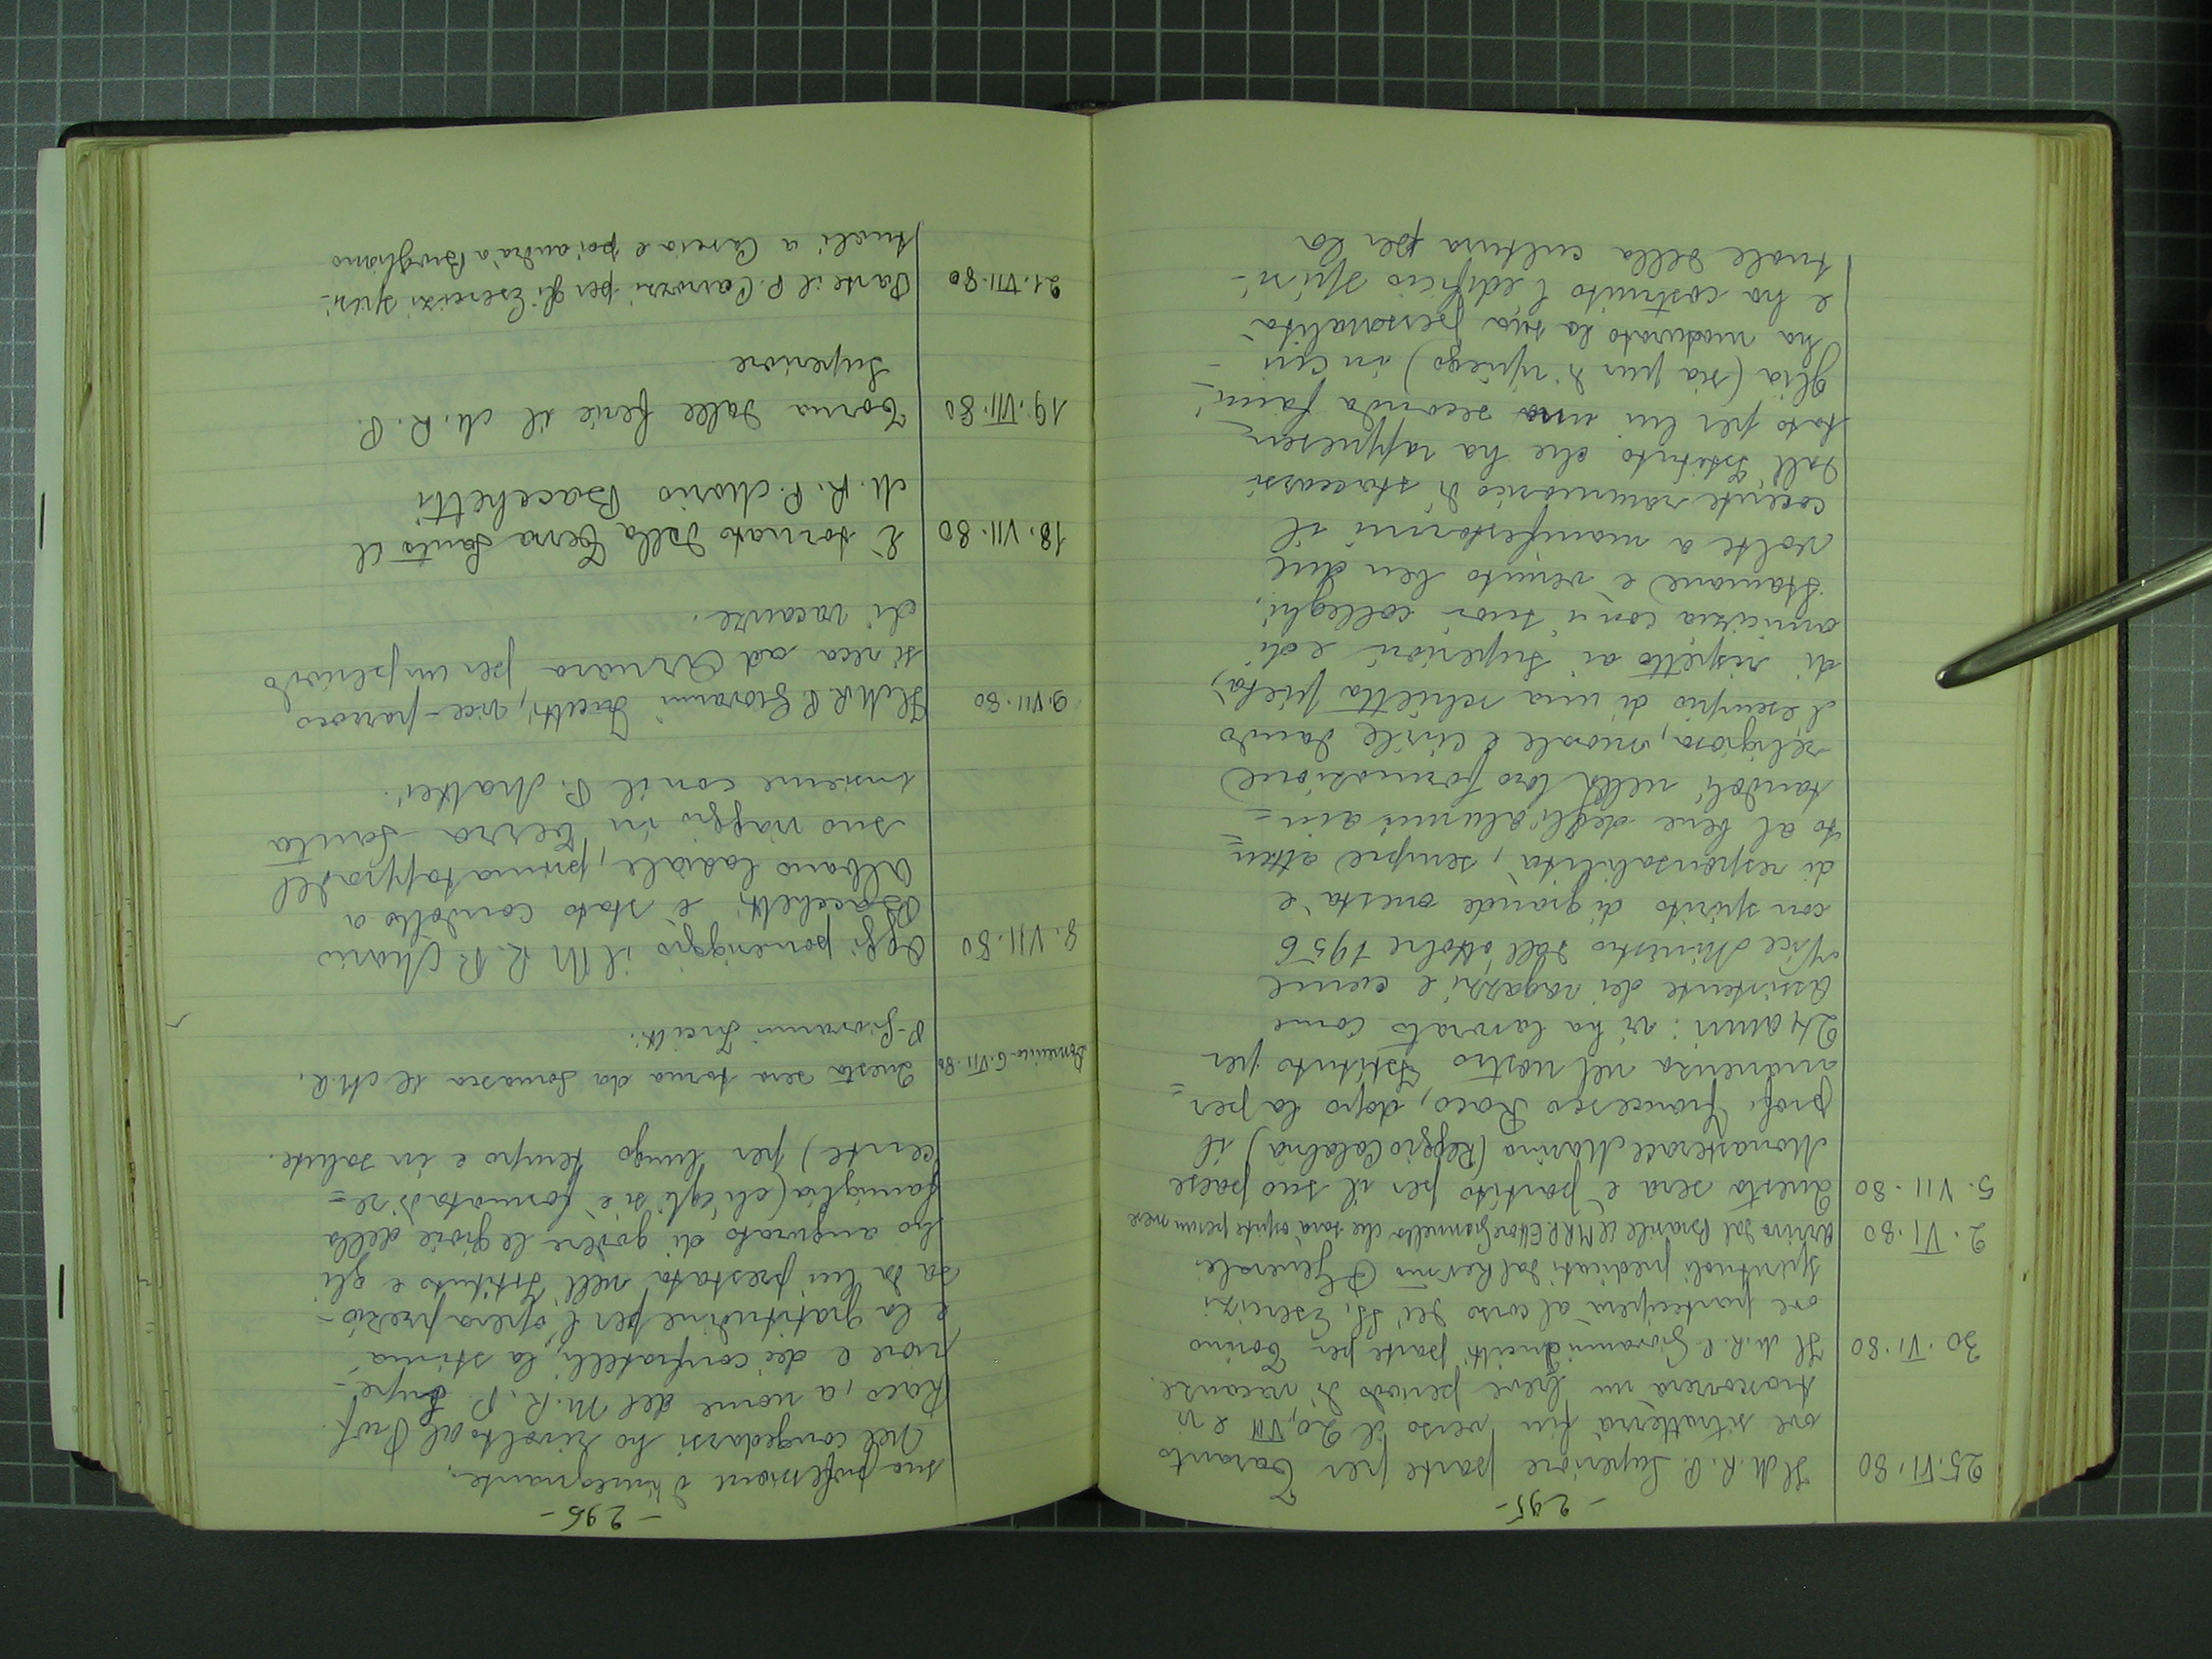 - 295 -
25.VI.80 Il M.R.P. Superiore parte per Taranto
ove si tratterrà fin verso il 20, VII e vi
trascorrerà un breve periodo di vacanze.
30.VI.80 Il M.R.P. Giovanni parte per Torino
ove parteciperà al corso dei SS. Esercizi
spirituali predicati dal Rev.mo P. Generale
2.VI.80 Arriva dal Brasile il M.R.P. che sarà ospite per un mese
5.VII.80 Questa sera è partito per il suo paese
Monasterace Marina (Reggio Calabria) il
prof. Francesco Raco, dopo la per=
manenza nel nostro Istituto per
24 anni: vi ha lavorato come
Assistente dei ragazzi e come
Vice Ministro dall'ottobre 1956
con spirito di grande onestà e
di responsabilità, sempre atten=
to al bene degli alunni aiu=
tandoli nella loro formazione
religiosa, morale e civile dando
esempio di una schietta pietà,
di rispetto ai Superiori e di
amicizia con i suoi colleghi,
Stamane è venuto ben due
volte a manifestarmi il
cocente rammarico di staccarsi
dall'Istituto che ha rappresen=
tato per lui una seconda fami=
glia (sia pur di ripiego) in cui
ha maturato la sua personalità
e ha costruito l'edificio spiri-
tuale della cultura per la
- 296 -
sua professione d'insegnante.
Nel congedarsi ho rivolto al Prof.
Raco, a nome del M.R.P. Supe-
riore e dei confratelli, la stima
e la gratitudine per l'opera prezio-
sa da lui prestata nell'Istituto e gli
ho augurato di godere le gioie della
famiglia (ch'egli si è formata di re=
cente) per lungo tempo e in salute.
Domenica 6.VII.80 Questa sera torna da Somasca il M.R.
P. Giovanni
8.VII.80 Oggi pomeriggio il M.R.P. Mario
Bacchetti è stato condotto a
Albano Laziale, prima tappa del
suo viaggio in Terra Santa
insieme con il P. Mattei.
9.VII.80 Il M.R.P. Giovanni vice-parroco
si reca ad Arnara per un periodo
di vacanze.
18.VII.80 È tornato dalla Terra Santa il
M.R.P. Mario Bacchetti
19.VII.80 Torna dalle ferie il M.R.P.
Superiore
21.VII.80 Parte il P. per gli Esercizi spiri-
tuali a e poi andrà a